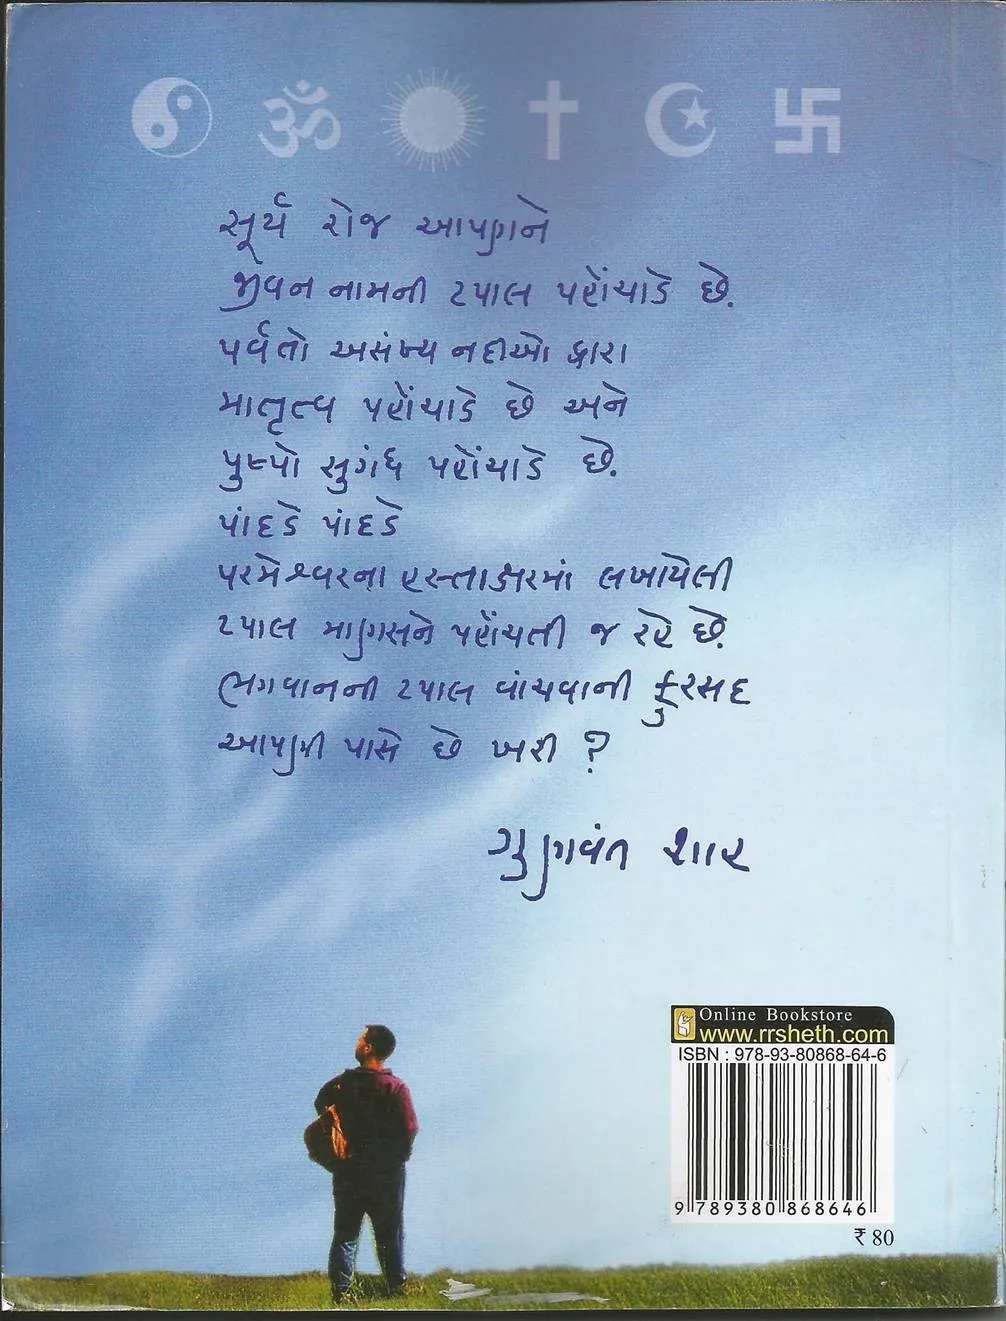 સૂર્ય રોજ આપણને
જીવન નામની ટપાલ પહોંચાડે છે.
પર્વતો અસંખ્ય નદીઓ દ્વારા
માતૃત્વ પહોંચાડે છે અને
પુષ્પો સુગંધ પહોંચાડે છે.
પાંદડે પાંદડે
પરમેશ્વરના હસ્તાક્ષરમાં લખાયેલી
ટપાલ માણસને પહોંચતી જ રહે છે.
ભગવાનની ટપાલ વાંચવાની ફુરસદ
આપણી પાસે છે ખરી ?
ગુણવંત શાહ
Online Bookstore
www.rrsheth.com
ISBN : 978-93-80868-64-6
9 789380 868646
₹ 80